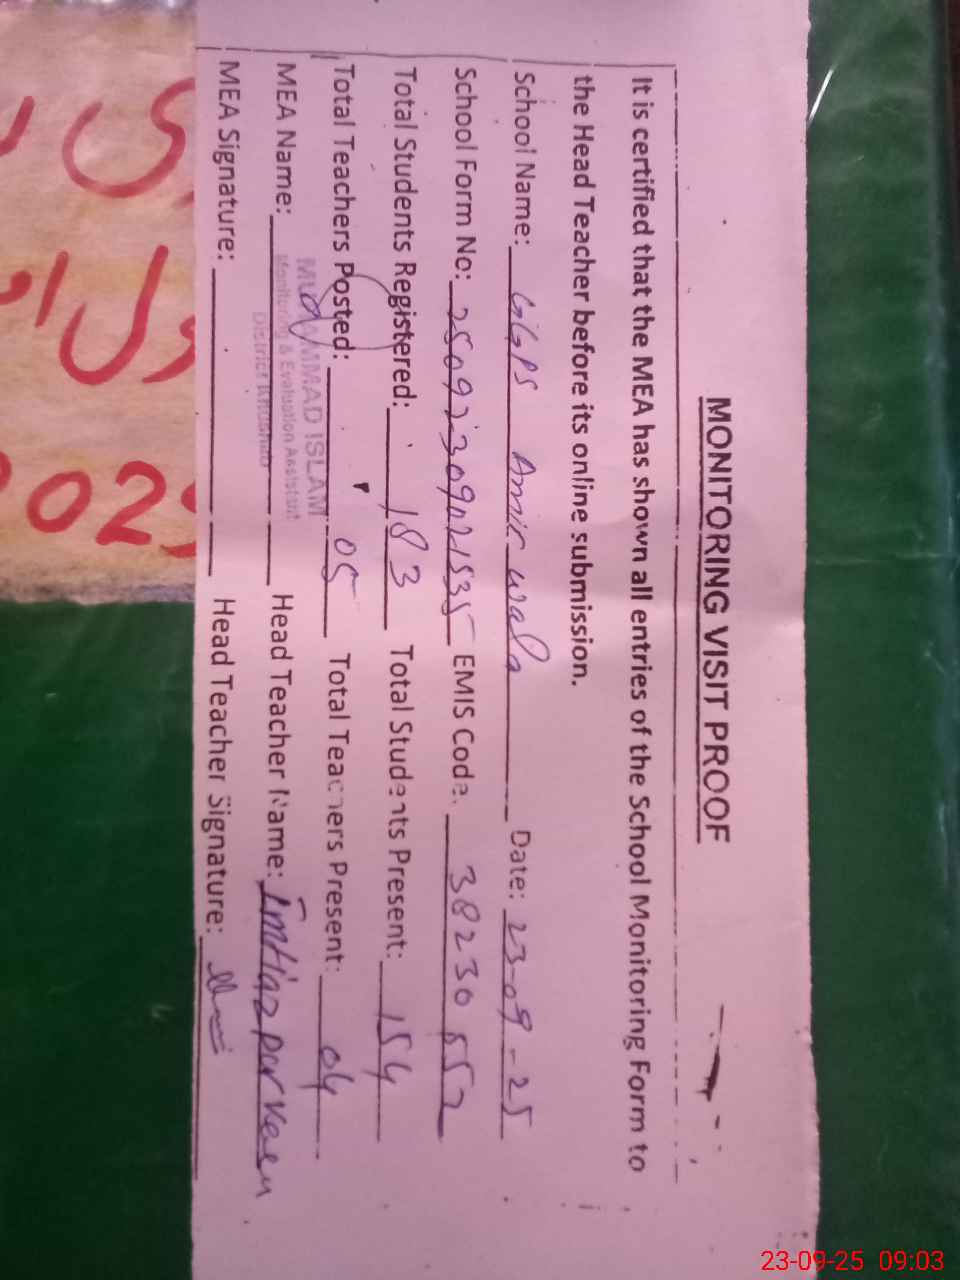 MONITORING VISIT PROOF
It is certified that the MEA has shown all entries of the School Monitoring Form to
the Head Teacher before its online submission.
School Name: GGPS Amir wala Date: 23-09-25
School Form No: 250923090921535 EMIS Code. 38230552
Total Students Registered: 183 Total Students Present: 154
Total Teachers Posted: 05 Total Teachers Present: 04
MUHAMMAD ISLAM
Monitoring & Evaluation Assistant
District Khushab
MEA Name: Head Teacher Name: Imtiaz parveen
MEA Signature: Head Teacher Signature:
23-09-25 09:03